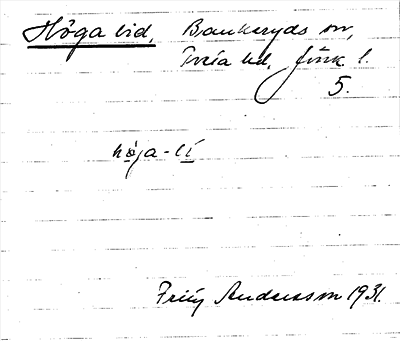 Höga lid, Bankeryds sn,
Tveta hd, Jönk. l.
5.
höga-lí
Friij Andersson 1931.